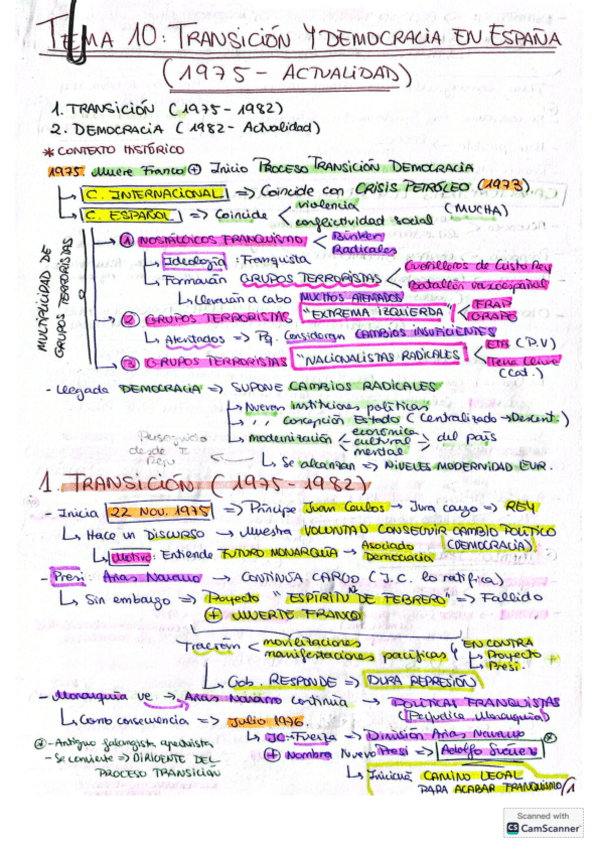 TEMA 10: TRANSICIÓN Y DEMOCRACIA EN ESPAÑA
(1975 - ACTUALIDAD)
1. TRANSICIÓN (1975 - 1982)
2. DEMOCRACIA (1982 - Actualidad)
* CONTEXTO HISTÓRICO
1975. Muere Franco ⊕ Inicio PROCESO TRANSICIÓN DEMOCRACIA
↳ C. INTERNACIONAL => Coincide con CRISIS PETRÓLEO (1973)
↳ C. ESPAÑOL => Coincide < violencia
conflictividad social (MUCHA)
MULTIPLICIDAD DE GRUPOS TERRORISTAS
① NOSTÁLGICOS FRANQUISMO < Búnker
Radicales
↳ Ideología: Franquista
↳ Formarán GRUPOS TERRORISTAS < Guerrilleros de Cristo Rey
Batallón vascoespañol
↳ Llevarán a cabo MUCHOS ATENTADOS
② GRUPOS TERRORISTAS "EXTREMA IZQUIERDA" < FRAP
GRAPO
↳ Atentados => Pq. Consideran CAMBIOS INSUFICIENTES
③ GRUPOS TERRORISTAS "NACIONALISTAS RADICALES" < ETA (P.V)
Terra Lliure (Cat.)
- Llegada DEMOCRACIA => SUPONE CAMBIOS RADICALES
↳ Nuevas instituciones políticas
↳ ,, Concepción Estado (Centralizado → Descent.)
↳ modernización < económica
cultural
mental
> del país
Perseguido desde II Repu
↳ Se alcanzan => NIVELES MODERNIDAD EUR.
1. TRANSICIÓN (1975 - 1982)
- Inicia 22 NOV. 1975 => Príncipe Juan Carlos → Jura cargo => REY
↳ Hace un DISCURSO → Muestra VOLUNTAD CONSEGUIR CAMBIO POLÍTICO
(DEMOCRACIA)
↳ Motivo: Entiende FUTURO MONARQUÍA → Asociado
Democracia
Presi: Arias Navarro → CONTINÚA CARGO (J.C. lo ratifica)
↳ Sin embargo => Proyecto "ESPÍRITU DE FEBRERO" => Fallido
⊕ MUERTE FRANCO
Traerán < movilizaciones
manifestaciones pacíficas
EN CONTRA
↳ Proyecto
↳ Presi.
↳ Gob. RESPONDE => DURA REPRESIÓN
- Monarquía ve => Arias Navarro continúa → POLÍTICAS FRANQUISTAS
(Perjudica Monarquía)
↳ Como consecuencia => Julio 1976.
↳ JC: Fuerza => Dimisión Arias Navarro
⊕ Nombra Nuevo Presi => Adolfo Suárez
- Antiguo falangista aperturista
- Se convierte => DIRIGENTE DEL
PROCESO TRANSICIÓN
↳ Iniciará CAMINO LEGAL
PARA ACABAR FRANQUISMO
1
Scanned with
CS CamScanner